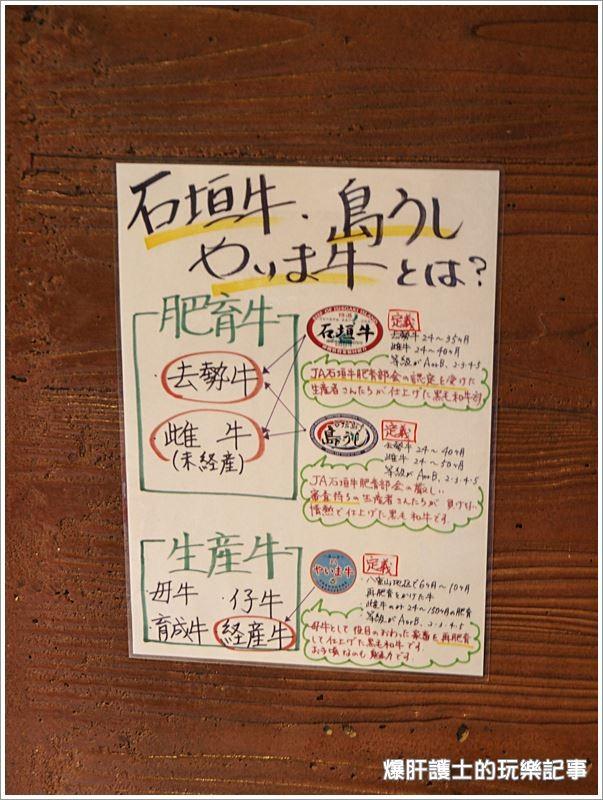 石垣牛・島うし
やいま牛とは?
肥育牛
去勢牛
雌牛
(未経産)
石垣牛
定義
去勢牛 24~35ヶ月
雌牛 24~40ヶ月
等級が AorB、2・3・4・5
JA石垣牛肥育部会の認定を受けた
生産者さんたちが仕上げた黒毛和牛
定義
去勢牛 24~40ヶ月
雌牛 24~50ヶ月
等級が AorB、2・3・4・5
JA石垣牛肥育部会の厳しい
審査待ちの生産者さんたちが 負けない
情熱で仕上げた黒毛和牛です。
生産牛
母牛
仔牛
育成牛
経産牛
やいま牛
定義
・八重山地区で6ヶ月~10ヶ月
再肥育をかけた牛
・雌牛のみ 24~150ヶ月の肥育
・等級が AorB、2・3・4・5
母牛として役目のおわった家畜を再肥育
して仕上げた黒毛和牛です。
お手頃なのも魅力です。
爆肝護士的玩樂記事